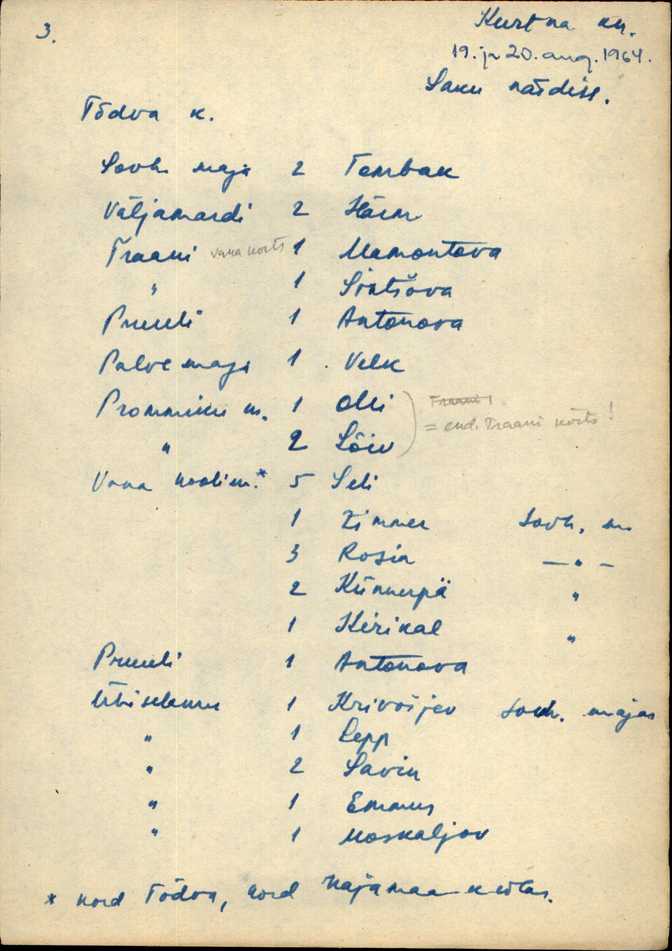 3.
Kurtna kn.
19. ja 20. aug. 1964.
Saku näidiss.
Tõdva k.
Sovh. maja 2 Tombak
Väljamardi 2 Härm
Traani vana kõrts 1 Mamontova
" 1 Sintšova
Pruuli 1 Antonova
Palvemaja 1 Velk
Prommiku m. 1 Olli
" 2 Lõiv
Traani 1
= end. Traani kõrts!
Vana koolim.* 5 Seli
1 Zimmer Sovh. m.
3 Rosin — " —
2 Künnupä "
1 Kirikal "
Pruuli 1 Antonova
Ühiselamu 1 Krivošjev Sovh. majas
" 1 Lepp
" 2 Savin
" 1 Emmus
" 1 Moskaljov
* kord Tõdva, kord Kajamaa k. võtas.